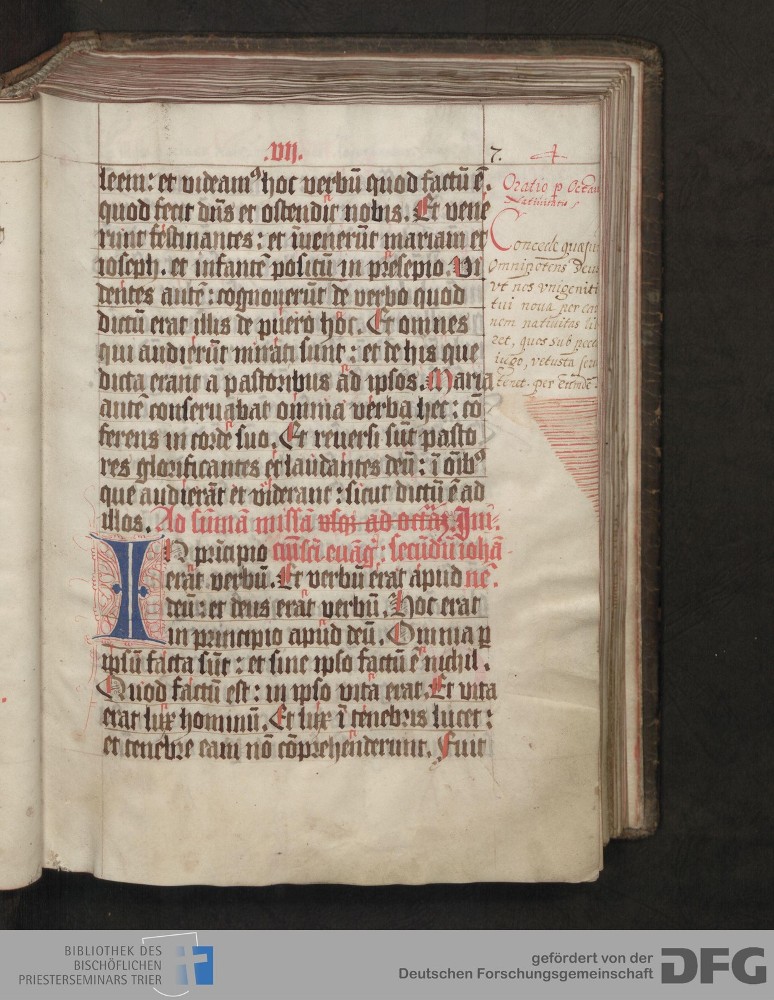 .vij.
7.
leem: et videam⁹ hoc verbū quod factū ē.
quod fecit dn̄s et ostendit nobis. Et vene
runt festinantes: et īvenerūt mariam et
ioseph. et infantē positū in presepio. Vi
dentes autē: cognoverūt de verbo quod
dictū erat illis de puero hoc. Et omnes
qui audierūt mirati sunt: et de his que
dicta erant a pastoribus ad ipsos. Maria
autē conservabat omnia verba hec: cō
ferens in corde suo. Et reversi sūt pasto
res glorificantes et laudantes deū: ī oīb⁹
que audierāt et viderant: sicut dictū ē ad
illos. Ad sūmā missā usqꝫ ad octāꝫ. Ini.
IN prīcipio ciū scī euāḡ: secūdū iohā
erat verbū. Et verbū erat apud nē.
deū: et deus erat verbū. Hoc erat
in principio apud deū. Omnia ꝑ
ipsū facta sūt: et sine ipso factū ē nichil.
Quod factū est: in ipso vita erat. Et vita
erat lux hominū. Et lux ī tenebris lucet:
et tenebre eam nō cōprehenderunt. Fuit
Oratio p Octau
Nativitatis
Concede quæsu
Omnipotens Deus
vt nos vnigeniti
tui noua per car
nem nativitas li
ret, quos sub pecc
iugo, vetusta seru
tenet. per eūndē
BIBLIOTHEK DES
BISCHÖFLICHEN
PRIESTERSEMINARS TRIER
gefördert von der
Deutschen Forschungsgemeinschaft
DFG